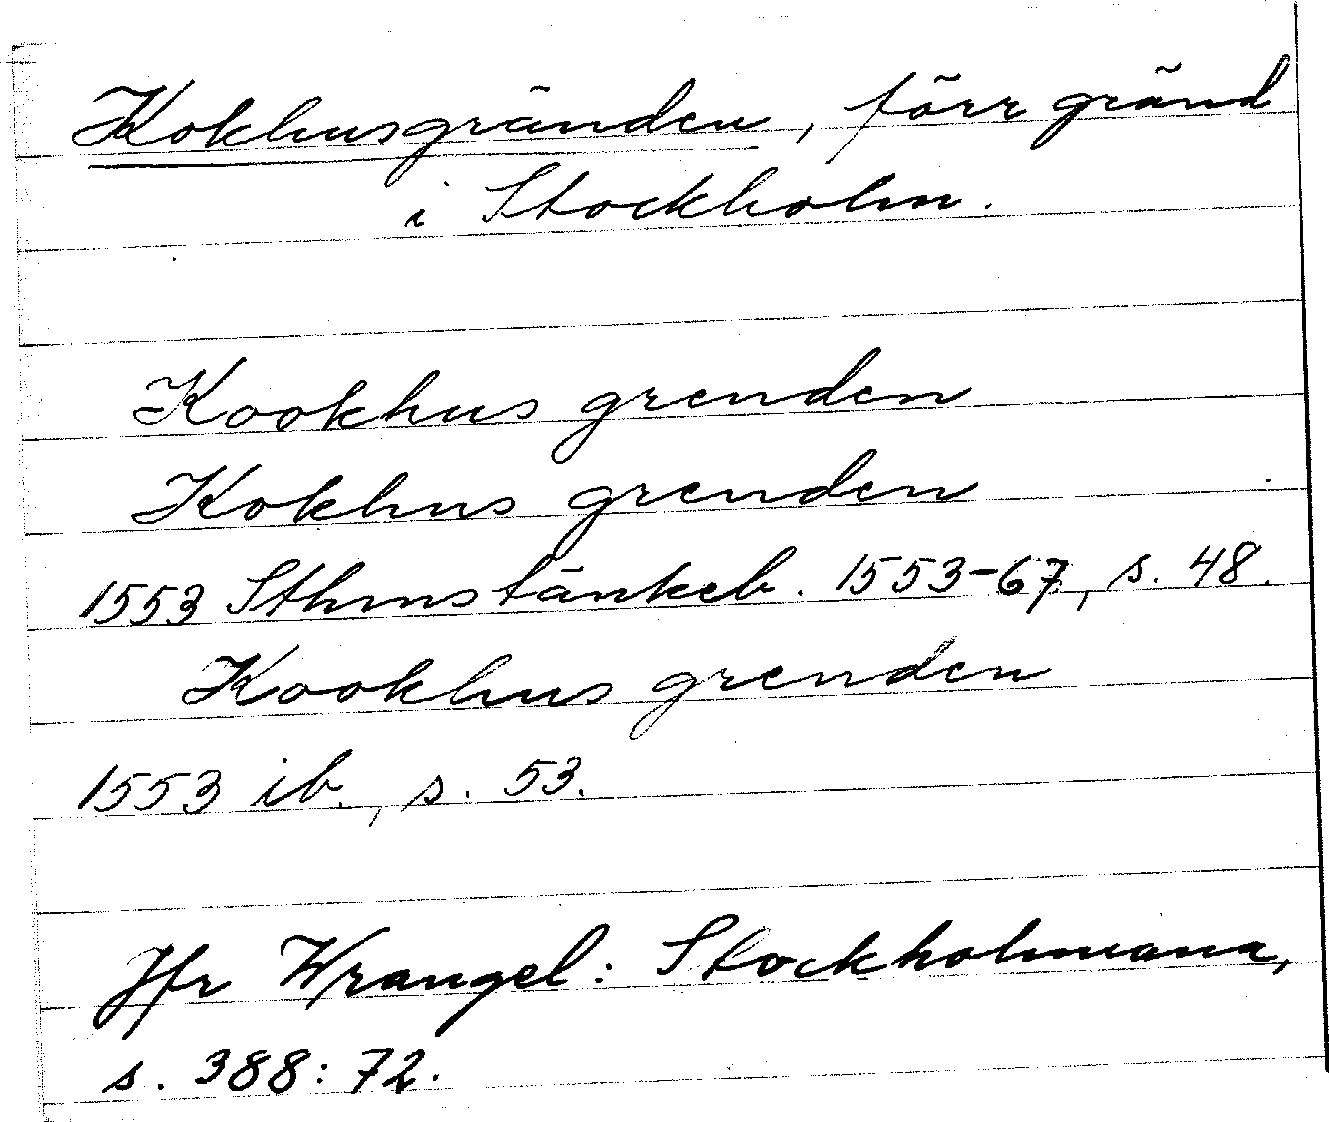 Kokhusgränden, förr gränd
i Stockholm.
Kookhus grenden
Kokhus grenden
1553 Sthmstänkeb. 1553-67, s. 48.
Kookhus grenden
1553 ib., s. 53.
Jfr Wrangel: Stockholmiana,
s. 388: 72.